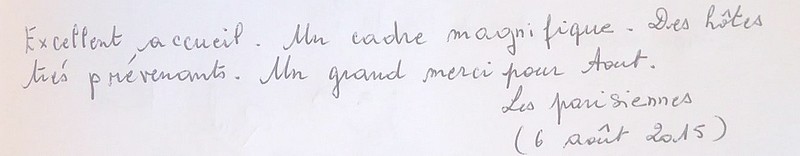 Excellent accueil. Un cadre magnifique. Des hôtes
très prévenants. Un grand merci pour tout.
Les parisiennes
(6 août 2015)